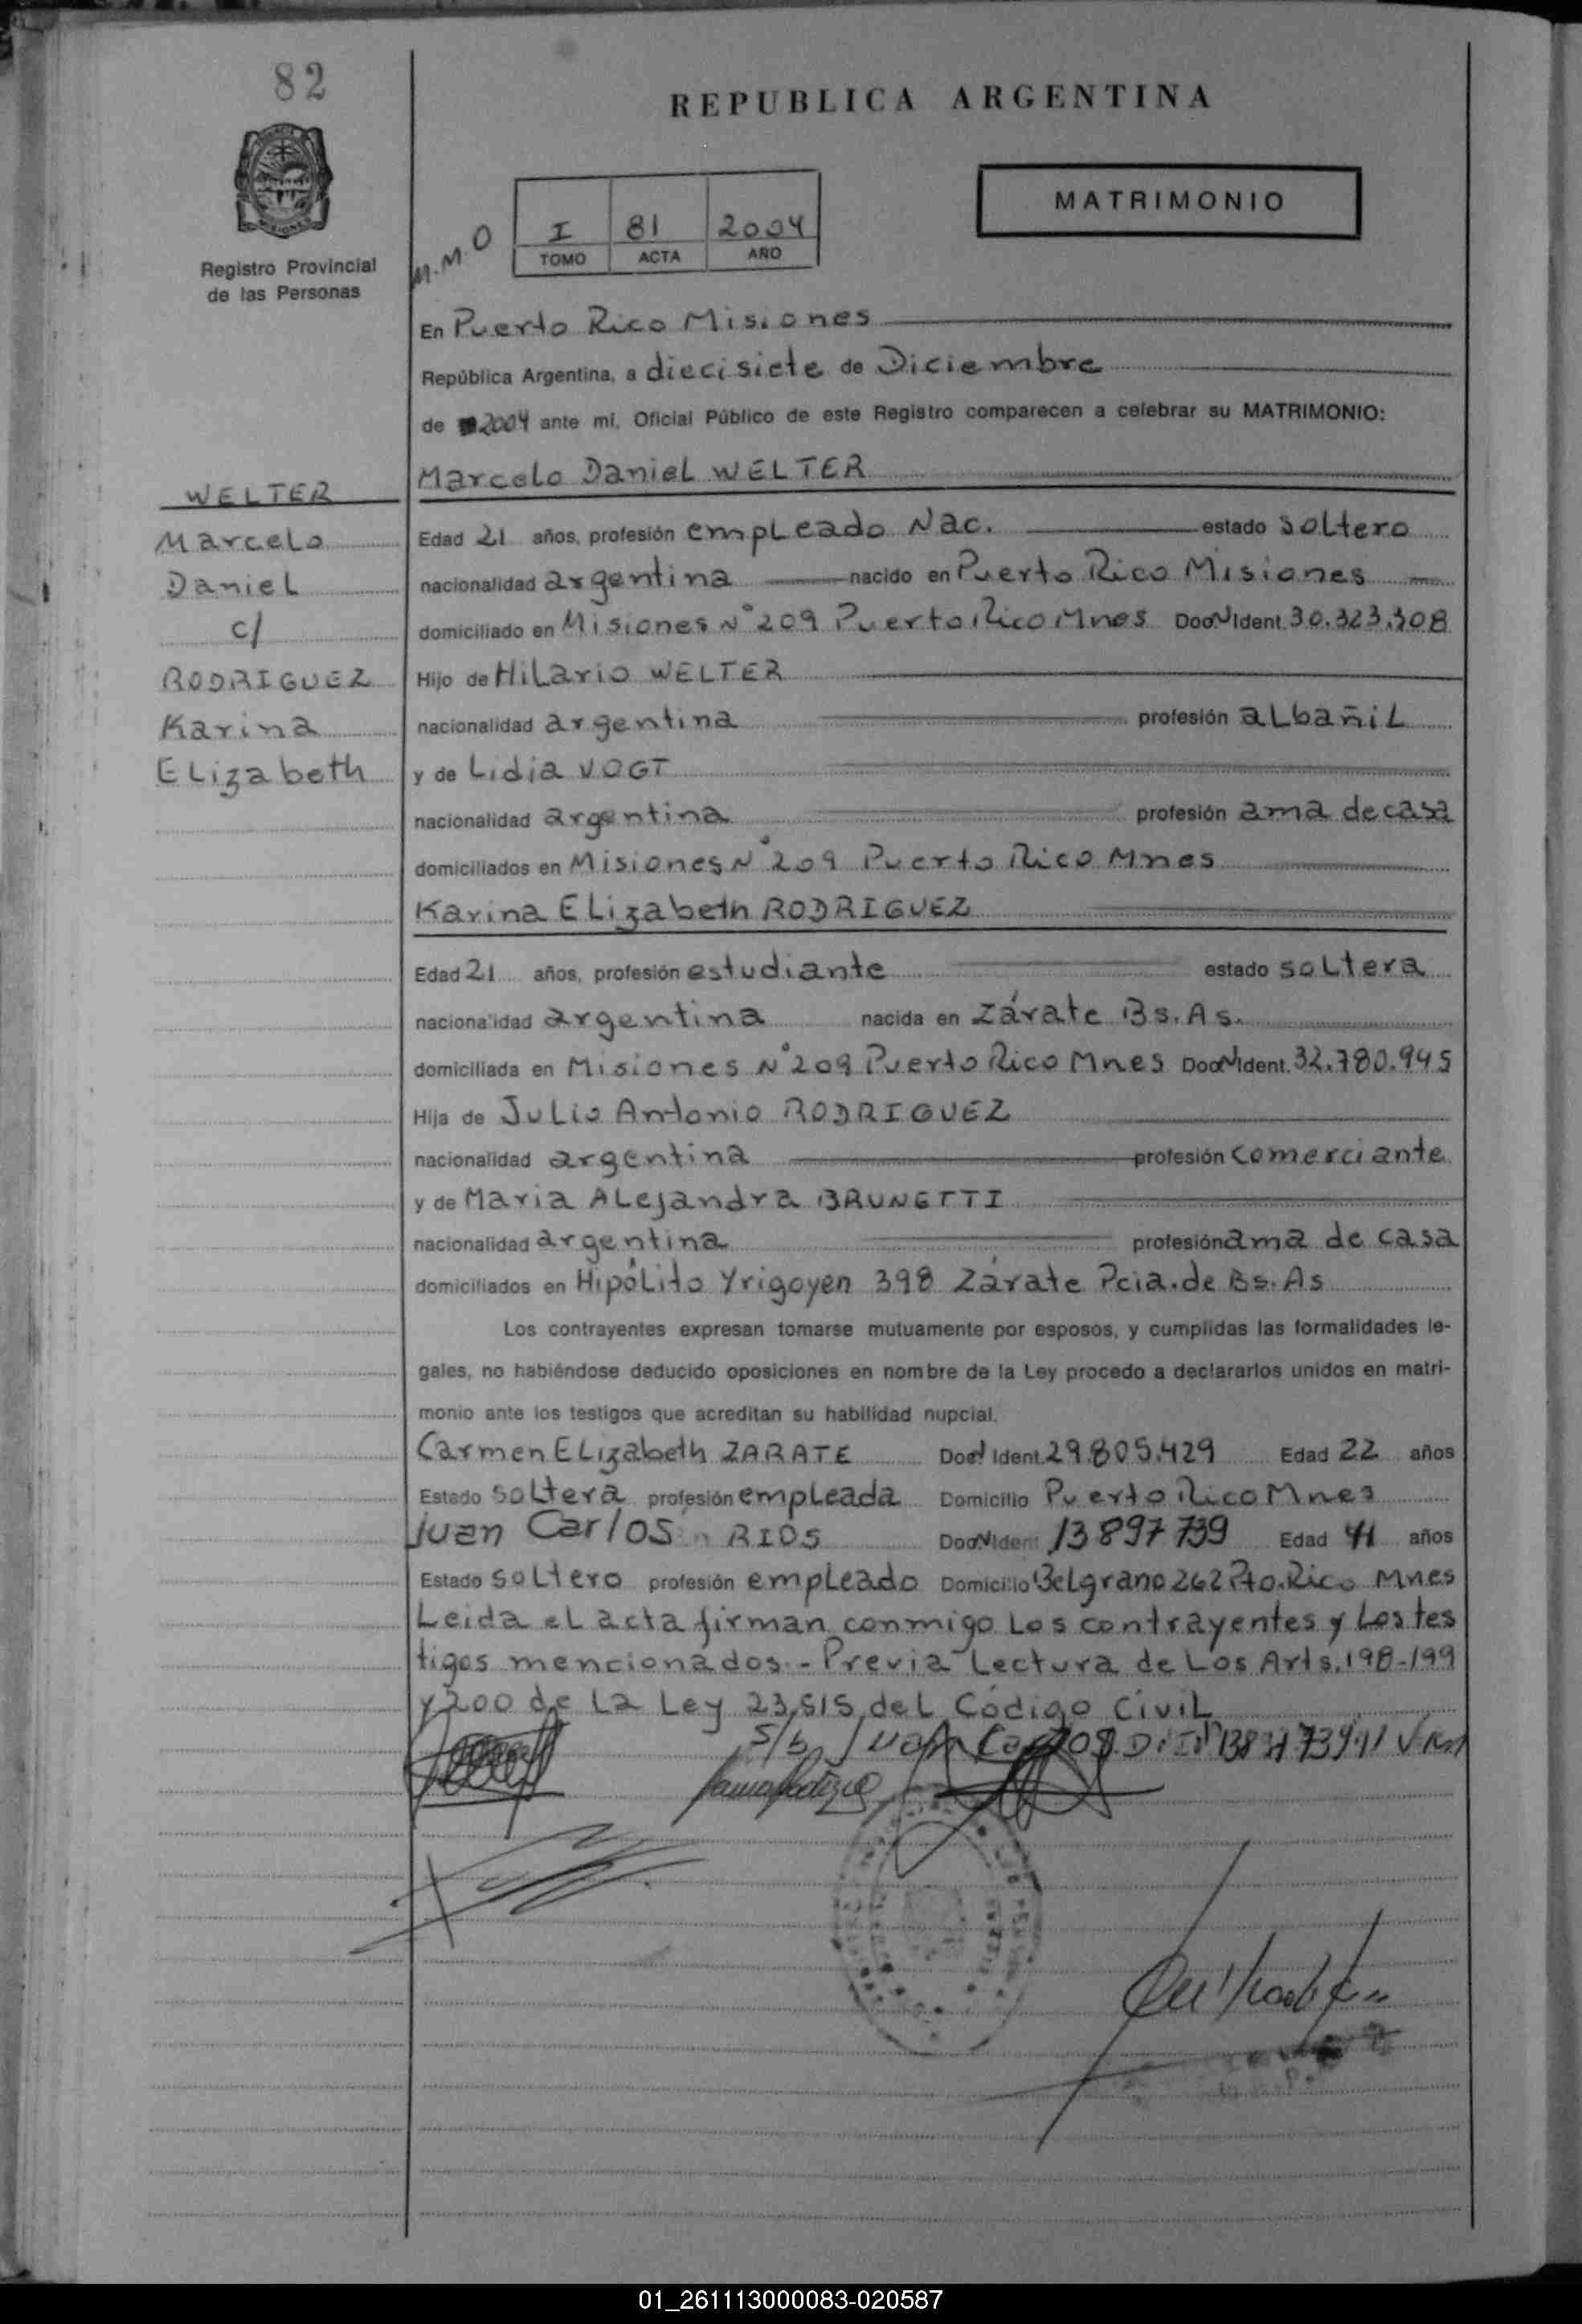 82
REPUBLICA ARGENTINA
MATRIMONIO
I 81 2004
TOMO ACTA AÑO
M.M.O
Registro Provincial
de las Personas
En Puerto Rico Misiones
República Argentina, a diecisiete de Diciembre
de 2004 ante mí, Oficial Público de este Registro comparecen a celebrar su MATRIMONIO:
Marcelo Daniel WELTER
WELTER
Marcelo
Daniel
c/
RODRIGUEZ
Karina
Elizabeth
Edad 21 años, profesión empleado Nac. estado soltero
nacionalidad argentina nacido en Puerto Rico Misiones
domiciliado en Misiones N° 209 Puerto Rico Mnes Doc N Ident. 30.323.308
Hijo de Hilario WELTER
nacionalidad argentina profesión albañil
y de Lidia VOGT
nacionalidad argentina profesión ama de casa
domiciliados en Misiones N° 209 Puerto Rico Mnes
Karina Elizabeth RODRIGUEZ
Edad 21 años, profesión estudiante estado soltera
nacionalidad argentina nacida en Zárate Bs. As.
domiciliada en Misiones N° 209 Puerto Rico Mnes Doc N Ident. 32.780.945
Hija de Julio Antonio RODRIGUEZ
nacionalidad argentina profesión comerciante
y de Maria Alejandra BRUNETTI
nacionalidad argentina profesión ama de casa
domiciliados en Hipólito Yrigoyen 398 Zárate Pcia. de Bs. As
Los contrayentes expresan tomarse mutuamente por esposos, y cumplidas las formalidades le-
gales, no habiéndose deducido oposiciones en nombre de la Ley procedo a declararlos unidos en matri-
monio ante los testigos que acreditan su habilidad nupcial.
Carmen Elizabeth ZARATE Doc N Ident. 29.805.429 Edad 22 años
Estado soltera profesión empleada Domicilio Puerto Rico Mnes
Juan Carlos RIOS Doc N Ident 13897739 Edad 41 años
Estado soltero profesión empleado Domicilio Belgrano 262 Pto. Rico Mnes
Leida el acta firman conmigo los contrayentes y los tes
tigos mencionados.- Previa Lectura de Los Arts. 198-199
y 200 de la Ley 23,515 del Código Civil
S/b Juan Carlos
01_261113000083-020587